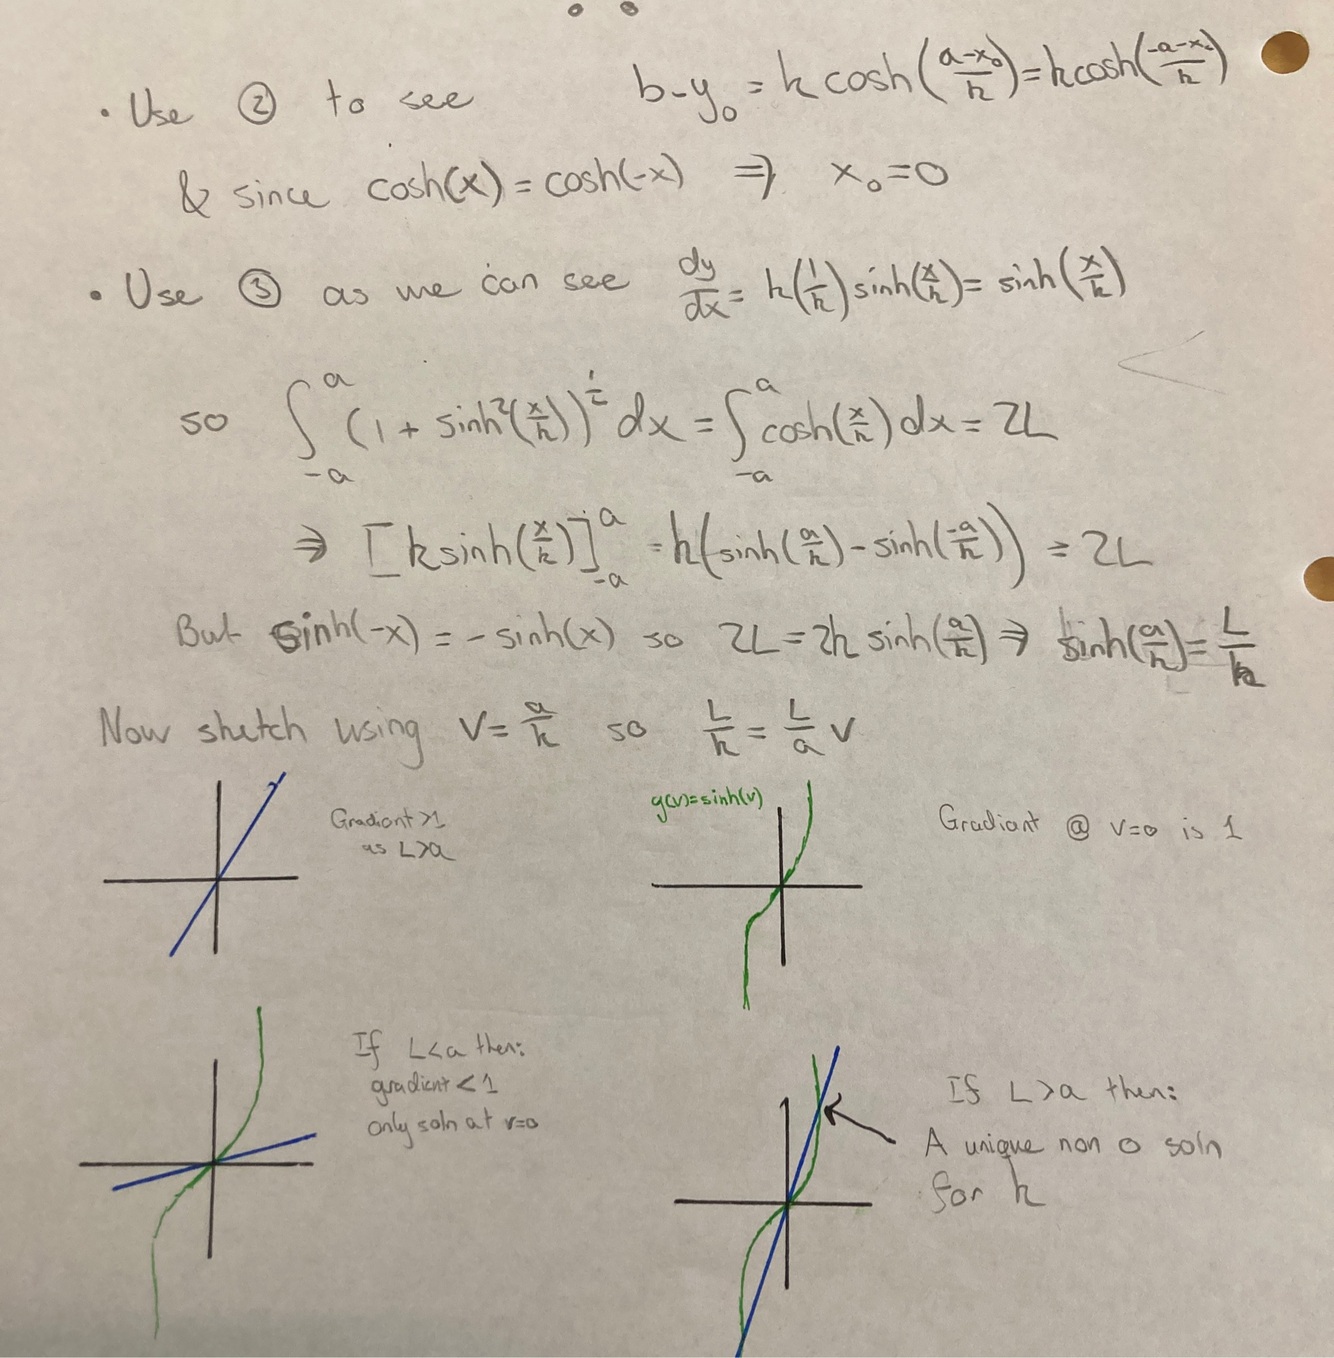 • Use ② to see b-y₀ = k cosh((a-x₀)/k) = k cosh((-a-x₀)/k)
& since cosh(x) = cosh(-x) ⇒ x₀=0
• Use ③ as we can see dy/dx = k(1/k) sinh(x/k) = sinh(x/k)
so ∫_{-a}^{a} (1 + sinh²(x/k))^{1/2} dx = ∫_{-a}^{a} cosh(x/k) dx = 2L
⇒ [k sinh(x/k)]_{-a}^{a} = k(sinh(a/k) - sinh(-a/k)) = 2L
But sinh(-x) = -sinh(x) so 2L = 2k sinh(a/k) ⇒ sinh(a/k) = L/k
Now sketch using v = a/k so L/k = L/a v
Gradient >1
as L>a
g(v)=sinh(v)
Gradient @ v=0 is 1
If L<a then:
gradient < 1
only soln at v=0
If L>a then:
A unique non 0 soln
for k